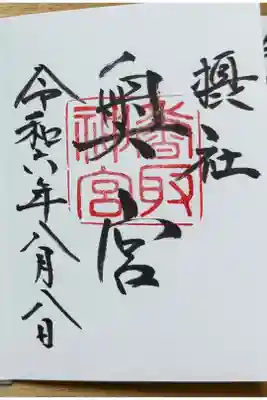 摂社
奥宮
香取
神宮
令和六年八月八日